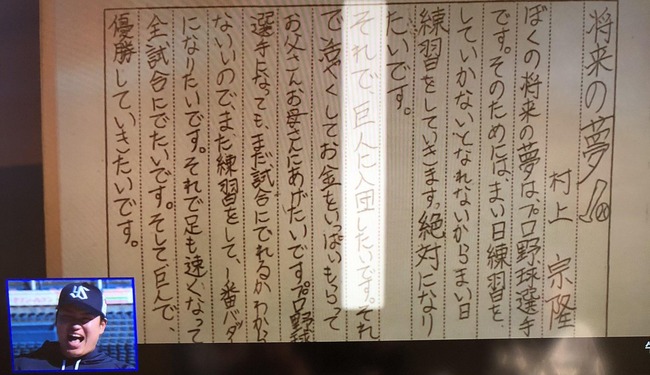 将来の夢!!
村上 宗隆
ぼくの将来の夢は、プロ野球選手
です。そのためには、まい日練習を、
していかないとなれないからまい日
練習をしていきます。絶対になり
たいです。
それで、巨人に入団したいです。それ
で活やくしてお金をいっぱいもらって
お父さんお母さんにあげたいです。プロ野球
選手になっても、まだ試合にでれるかわから
ないので、また練習をして、1番バダ
になりたいです。それで足も速くなって
全試合にでたいです。そして巨人で、
優勝していきたいです。